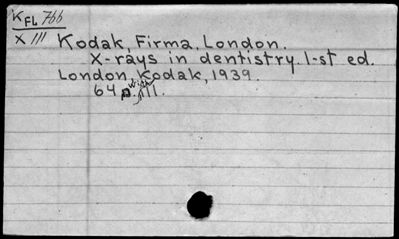 KFL 766
X III
Kodak, Firma, London.
X-rays in dentistry. 1-st ed.
London, Kodak, 1939.
64 p. with ill.